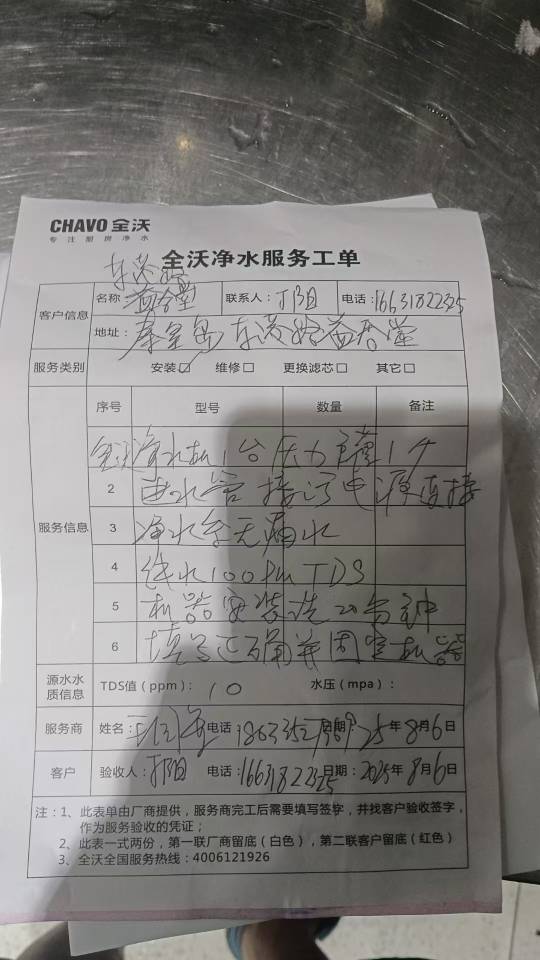 CHAVO 全沃
专注厨房净水
全沃净水服务工单
客户信息
名称 益合堂 联系人：丁阳 电话：16631822325
地址：秦皇岛
服务类别 安装□ 维修□ 更换滤芯□ 其它□
服务信息
序号 型号 数量 备注
全沃净水机1台压力罐1个
2 进水管接 电源直接
3 净水 无漏水
4 纯水100 TDS
5 机器安装 20 钟
6 正确并固定机器
源水水质信息 TDS值（ppm）：10 水压（mpa）：
服务商 姓名： 电话 日期：25年8月6日
客户 验收人：丁阳 电话：16631822325 日期：2025年8月6日
注：1、此表单由厂商提供，服务商完工后需要填写签字，并找客户验收签字，
作为服务验收的凭证；
2、此表一式两份，第一联厂商留底（白色），第二联客户留底（红色）
3、全沃全国服务热线：4006121926